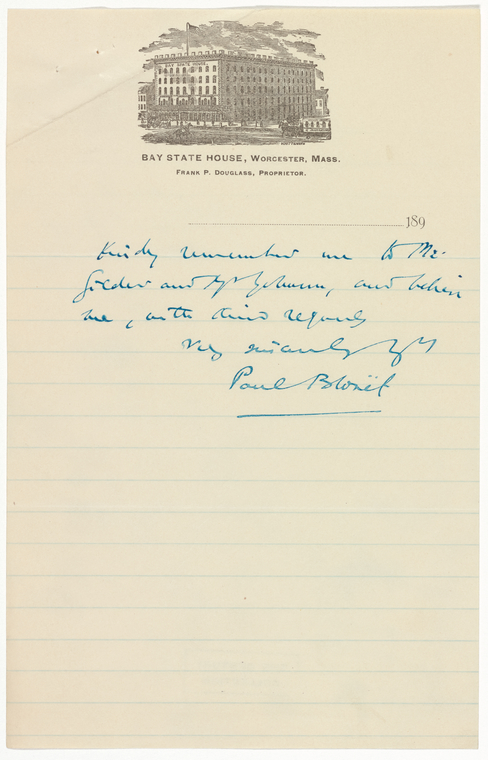 BAY STATE HOUSE
BAY STATE HOUSE, WORCESTER, MASS.
FRANK P. DOUGLASS, PROPRIETOR.
189
Kindly remember me to Mr.
Gilder and Mr Johnson, and believe
me, with kind regards
Very sincerely yrs
Paul Blouët